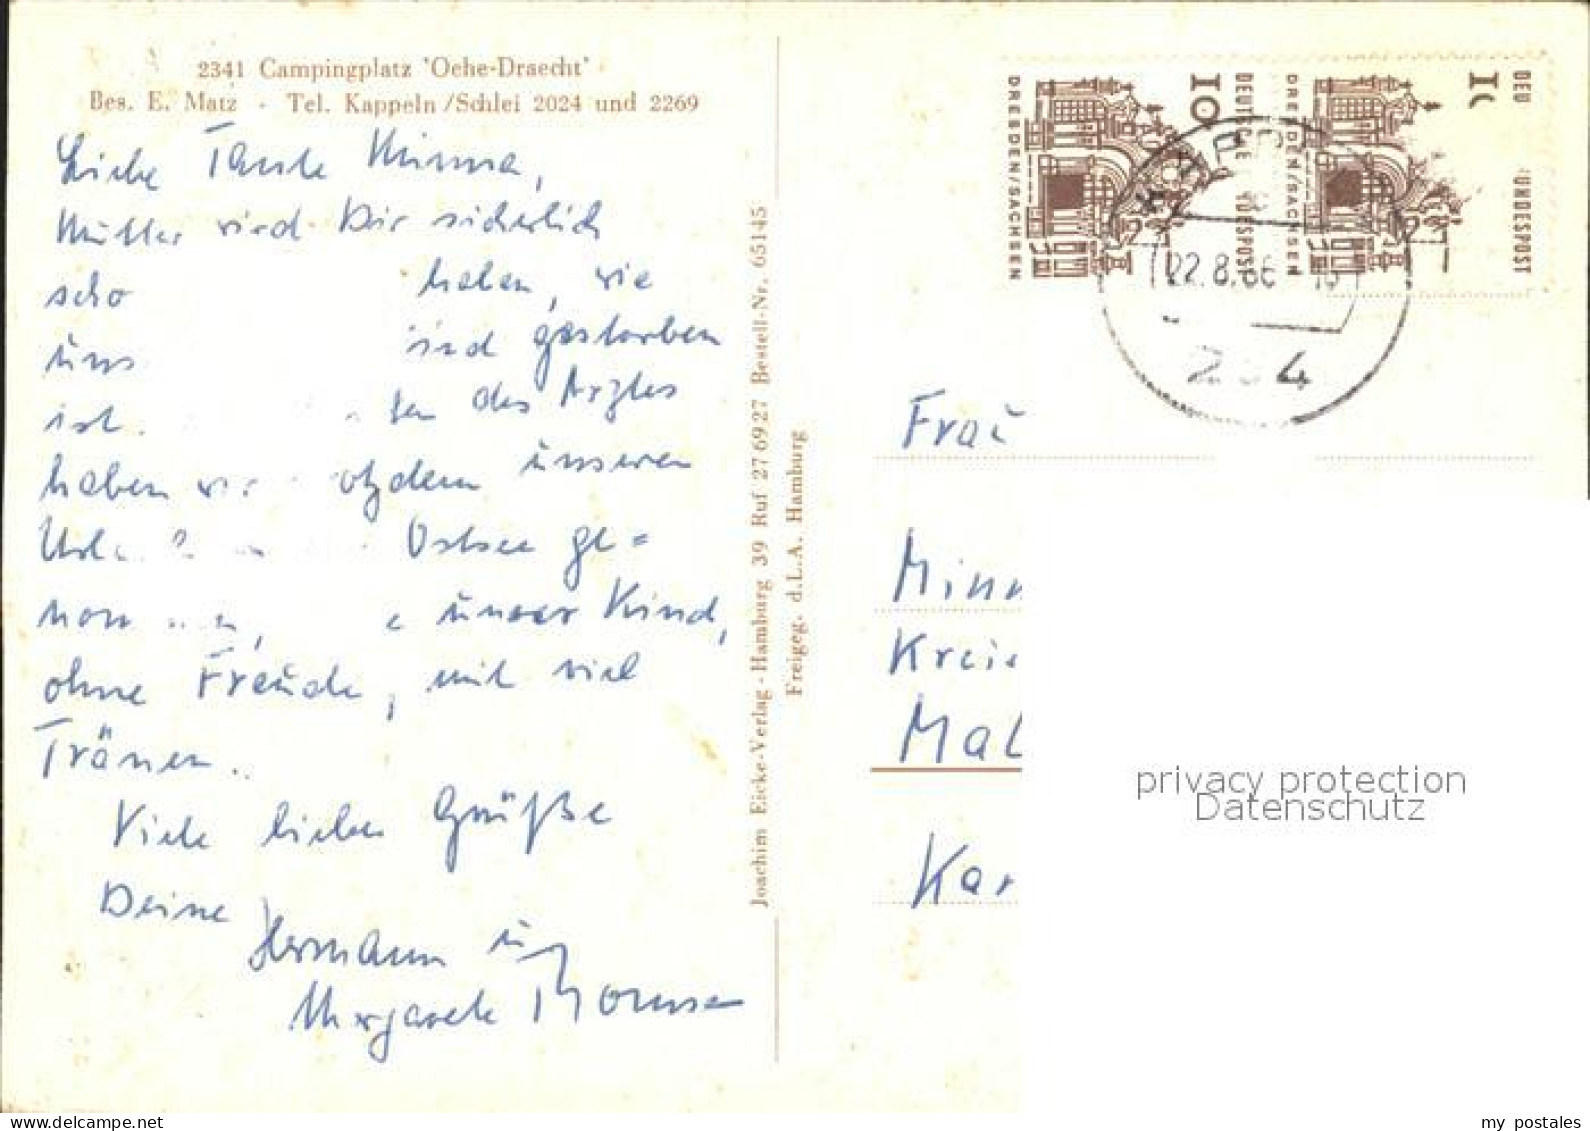 2341 Campingplatz 'Oehe-Draecht'
Bes. E. Matz · Tel. Kappeln/Schlei 2024 und 2269
Liebe Tante Minna,
Mutter wird Dir sicherlich
scho haben, wie
uns sind gestorben
ist. des Arztes
haben otzdem unseren
Url Ostsee ge=
nom unser Kind,
ohne Freude, mit viel
Tränen.
Viele liebe Grüße
Deine
Hermann u
Margarete
Joachim Eicke-Verlag - Hamburg 39 Ruf 276927 Bestell-Nr. 65145
Freigeg. d.L.A. Hamburg
DRESDEN/SACHSEN
10
DEUTSCHE BUNDESPOST
DRESDEN/SACHSEN
1
DEU UNDESPOST
22.8.66
2 4
Frau
Minn
Kreis
Mal
Kar
privacy protection
Datenschutz
my postales